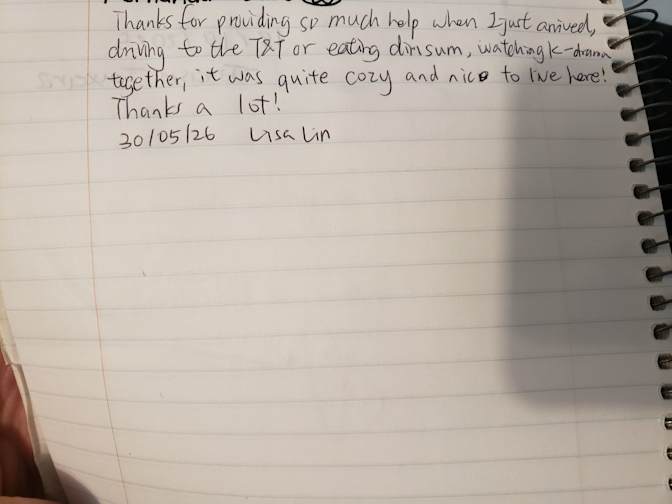 Thanks for providing so much help when I just arrived,
driving to the T&T or eating dimsum, watching K-drama
together, it was quite cozy and nice to live here!
Thanks a lot!
30/05/26 Lisa Lin